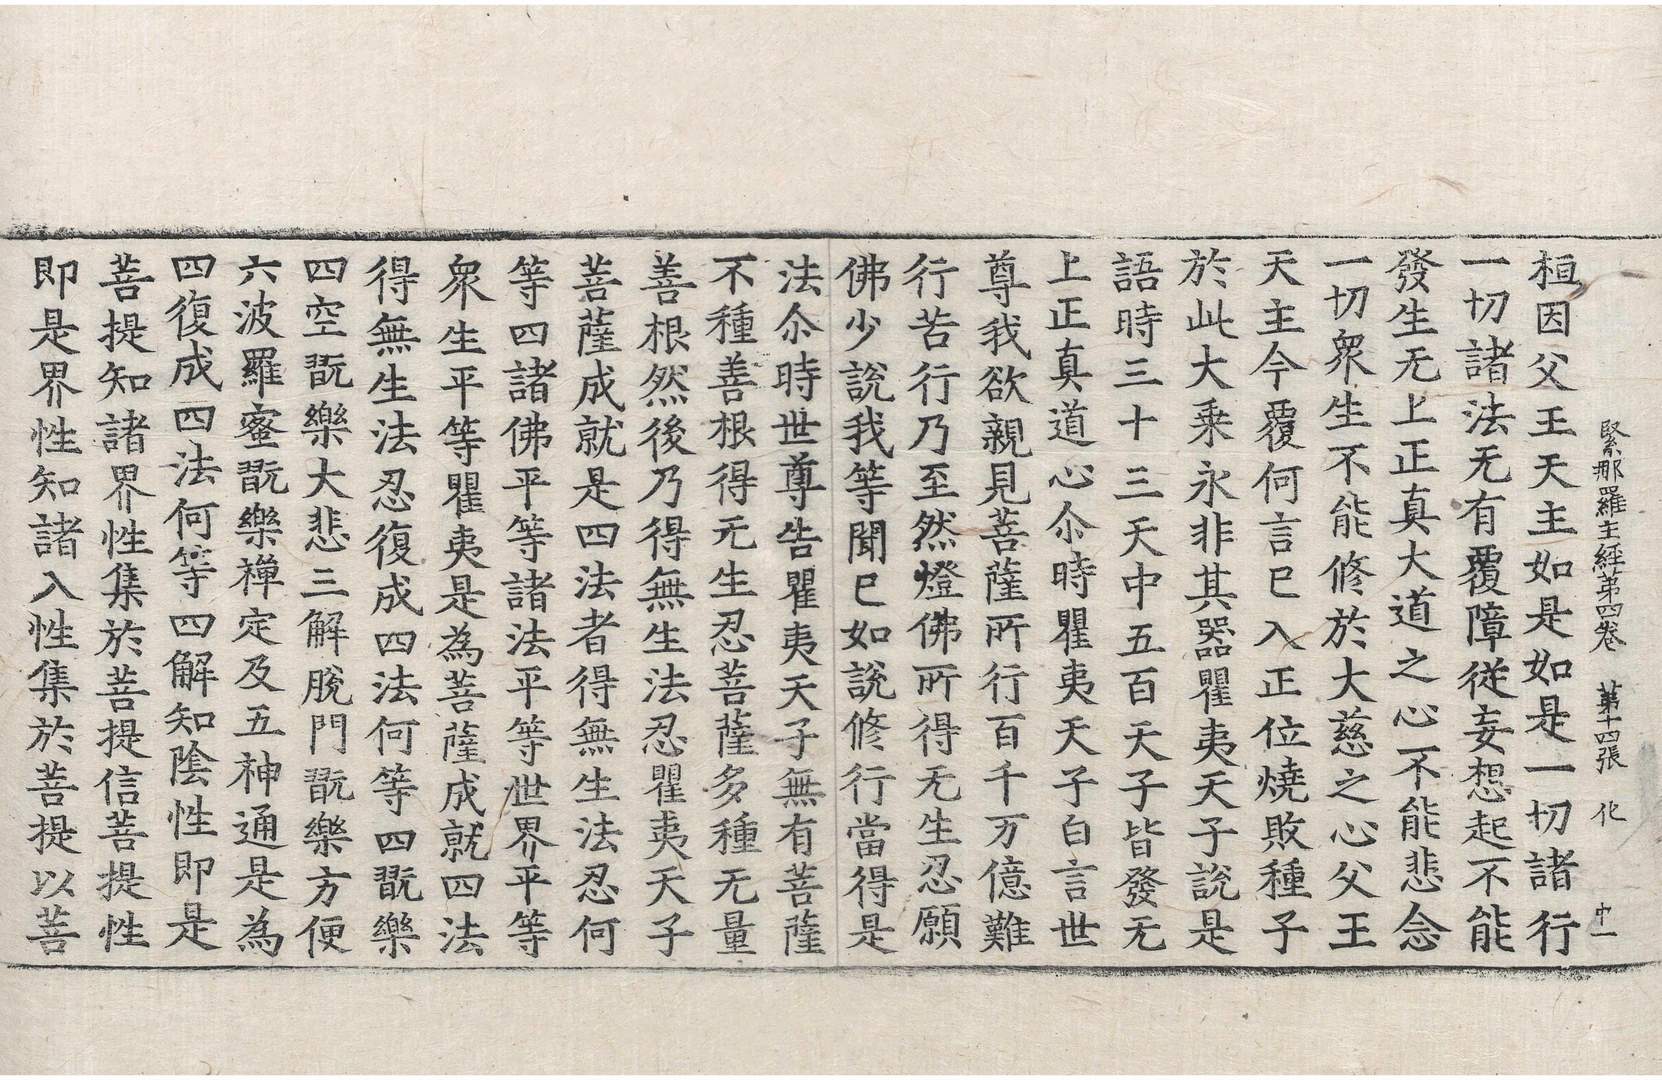 緊那羅主經第四卷 第十四張 化 中一
桓因父王天主如是如是一切諸行
一切諸法无有覆障從妄想起不能
發生无上正真大道之心不能悲念
一切衆生不能修於大慈之心父王
天主今覆何言已入正位燒敗種子
於此大乘永非其器瞿夷天子說是
語時三十三天中五百天子皆發无
上正真道心尒時瞿夷天子白言世
尊我欲親見菩薩所行百千万億難
行苦行乃至然燈佛所得无生忍願
佛少說我等聞已如說修行當得是
法尒時世尊告瞿夷天子無有菩薩
不種善根得无生忍菩薩多種无量
善根然後乃得無生法忍瞿夷天子
菩薩成就是四法者得無生法忍何
等四諸佛平等諸法平等世界平等
衆生平等瞿夷是為菩薩成就四法
得無生法忍復成四法何等四翫樂
四空翫樂大悲三解脫門翫樂方便
六波羅蜜翫樂禪定及五神通是為
四復成四法何等四解知陰性即是
菩提知諸界性集於菩提信菩提性
即是界性知諸入性集於菩提以菩